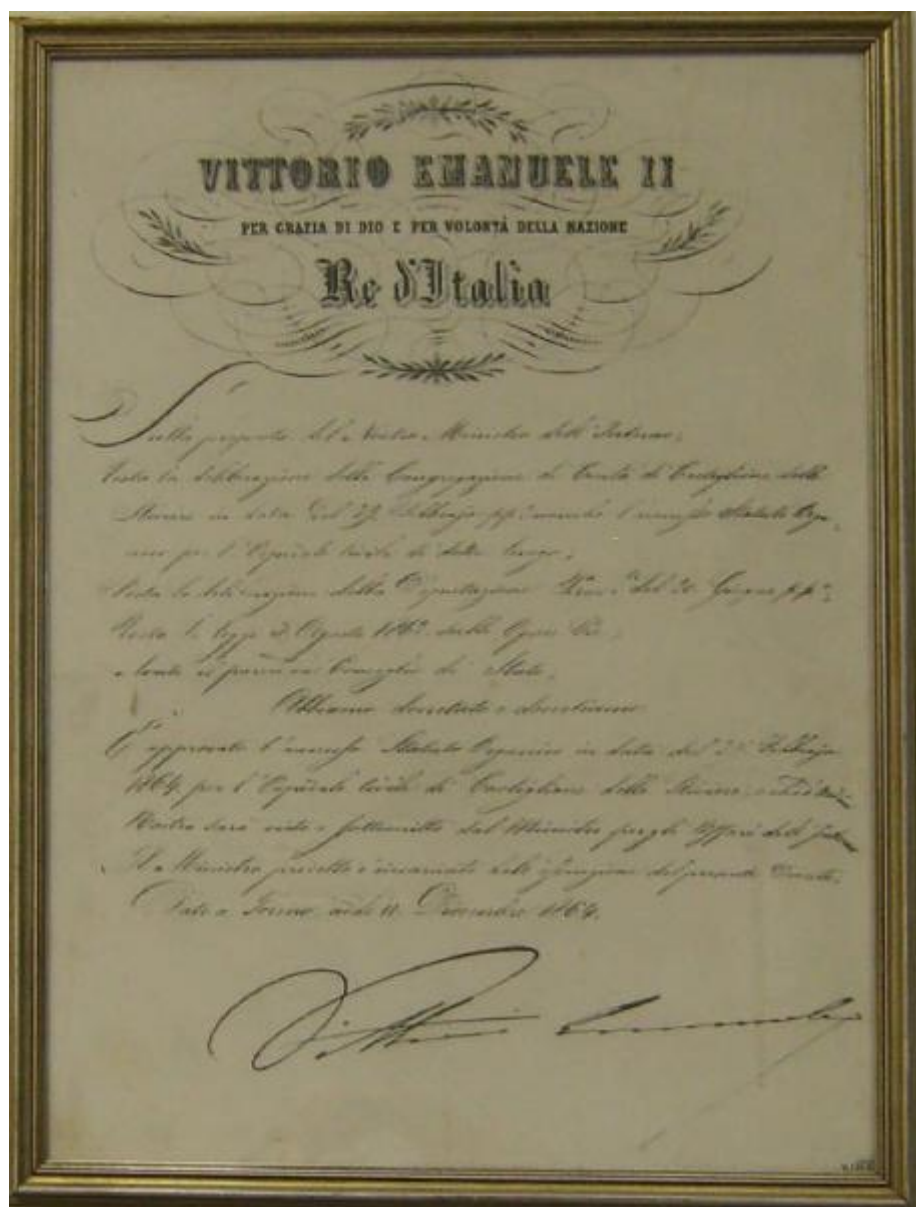 VITTORIO EMANUELE II
PER GRAZIA DI DIO E PER VOLONTÀ DELLA NAZIONE
Re d'Italia
Sulla proposta del Nostro Ministro dell'Interno,
Vista la deliberazione della Congregazione di Carità di Castiglione delle
Stiviere in data del 29 Febbrajo Statuto Orga-
nico per l'Ospedale Civile di detto luogo,
Vista la deliberazione della Deputazione del Giugno
Vista la legge 3 Agosto 1862 sulle Opere Pie,
Consiglio di Stato,
Abbiamo decretato e decretiamo
È approvato l'annesso Statuto Organico in data del Febbrajo
1864 per l'Ospedale Civile di Castiglione delle Stiviere,
Nostro sarà visto e sottoscritto dal Ministro per gli Affari dell'
Il Ministro predetto è incaricato della esecuzione del presente Decreto.
Dato a Torino addì 11 Dicembre 1864.
Vittorio Emanuele